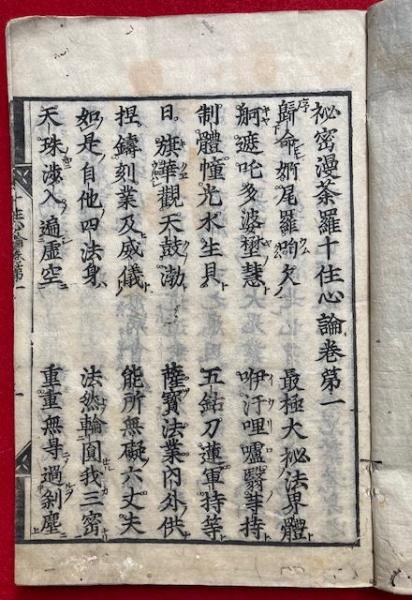 祕密漫荼羅十住心論卷第一
序
歸命婀尾羅呴欠　最極大祕法界體
舸遮吒多婆壄慧　咿汙哩嚧翳等持
制體幢光水生貝　五鈷刀蓮軍持等
日旗華觀天鼓渤　薩寶法業內外供
捏鑄刻業及威儀　能所無礙六丈夫
如是自他四法身　法然輪圓我三密
天珠涉入遍虛空　重重無㝵過刹塵
十住心論卷第一